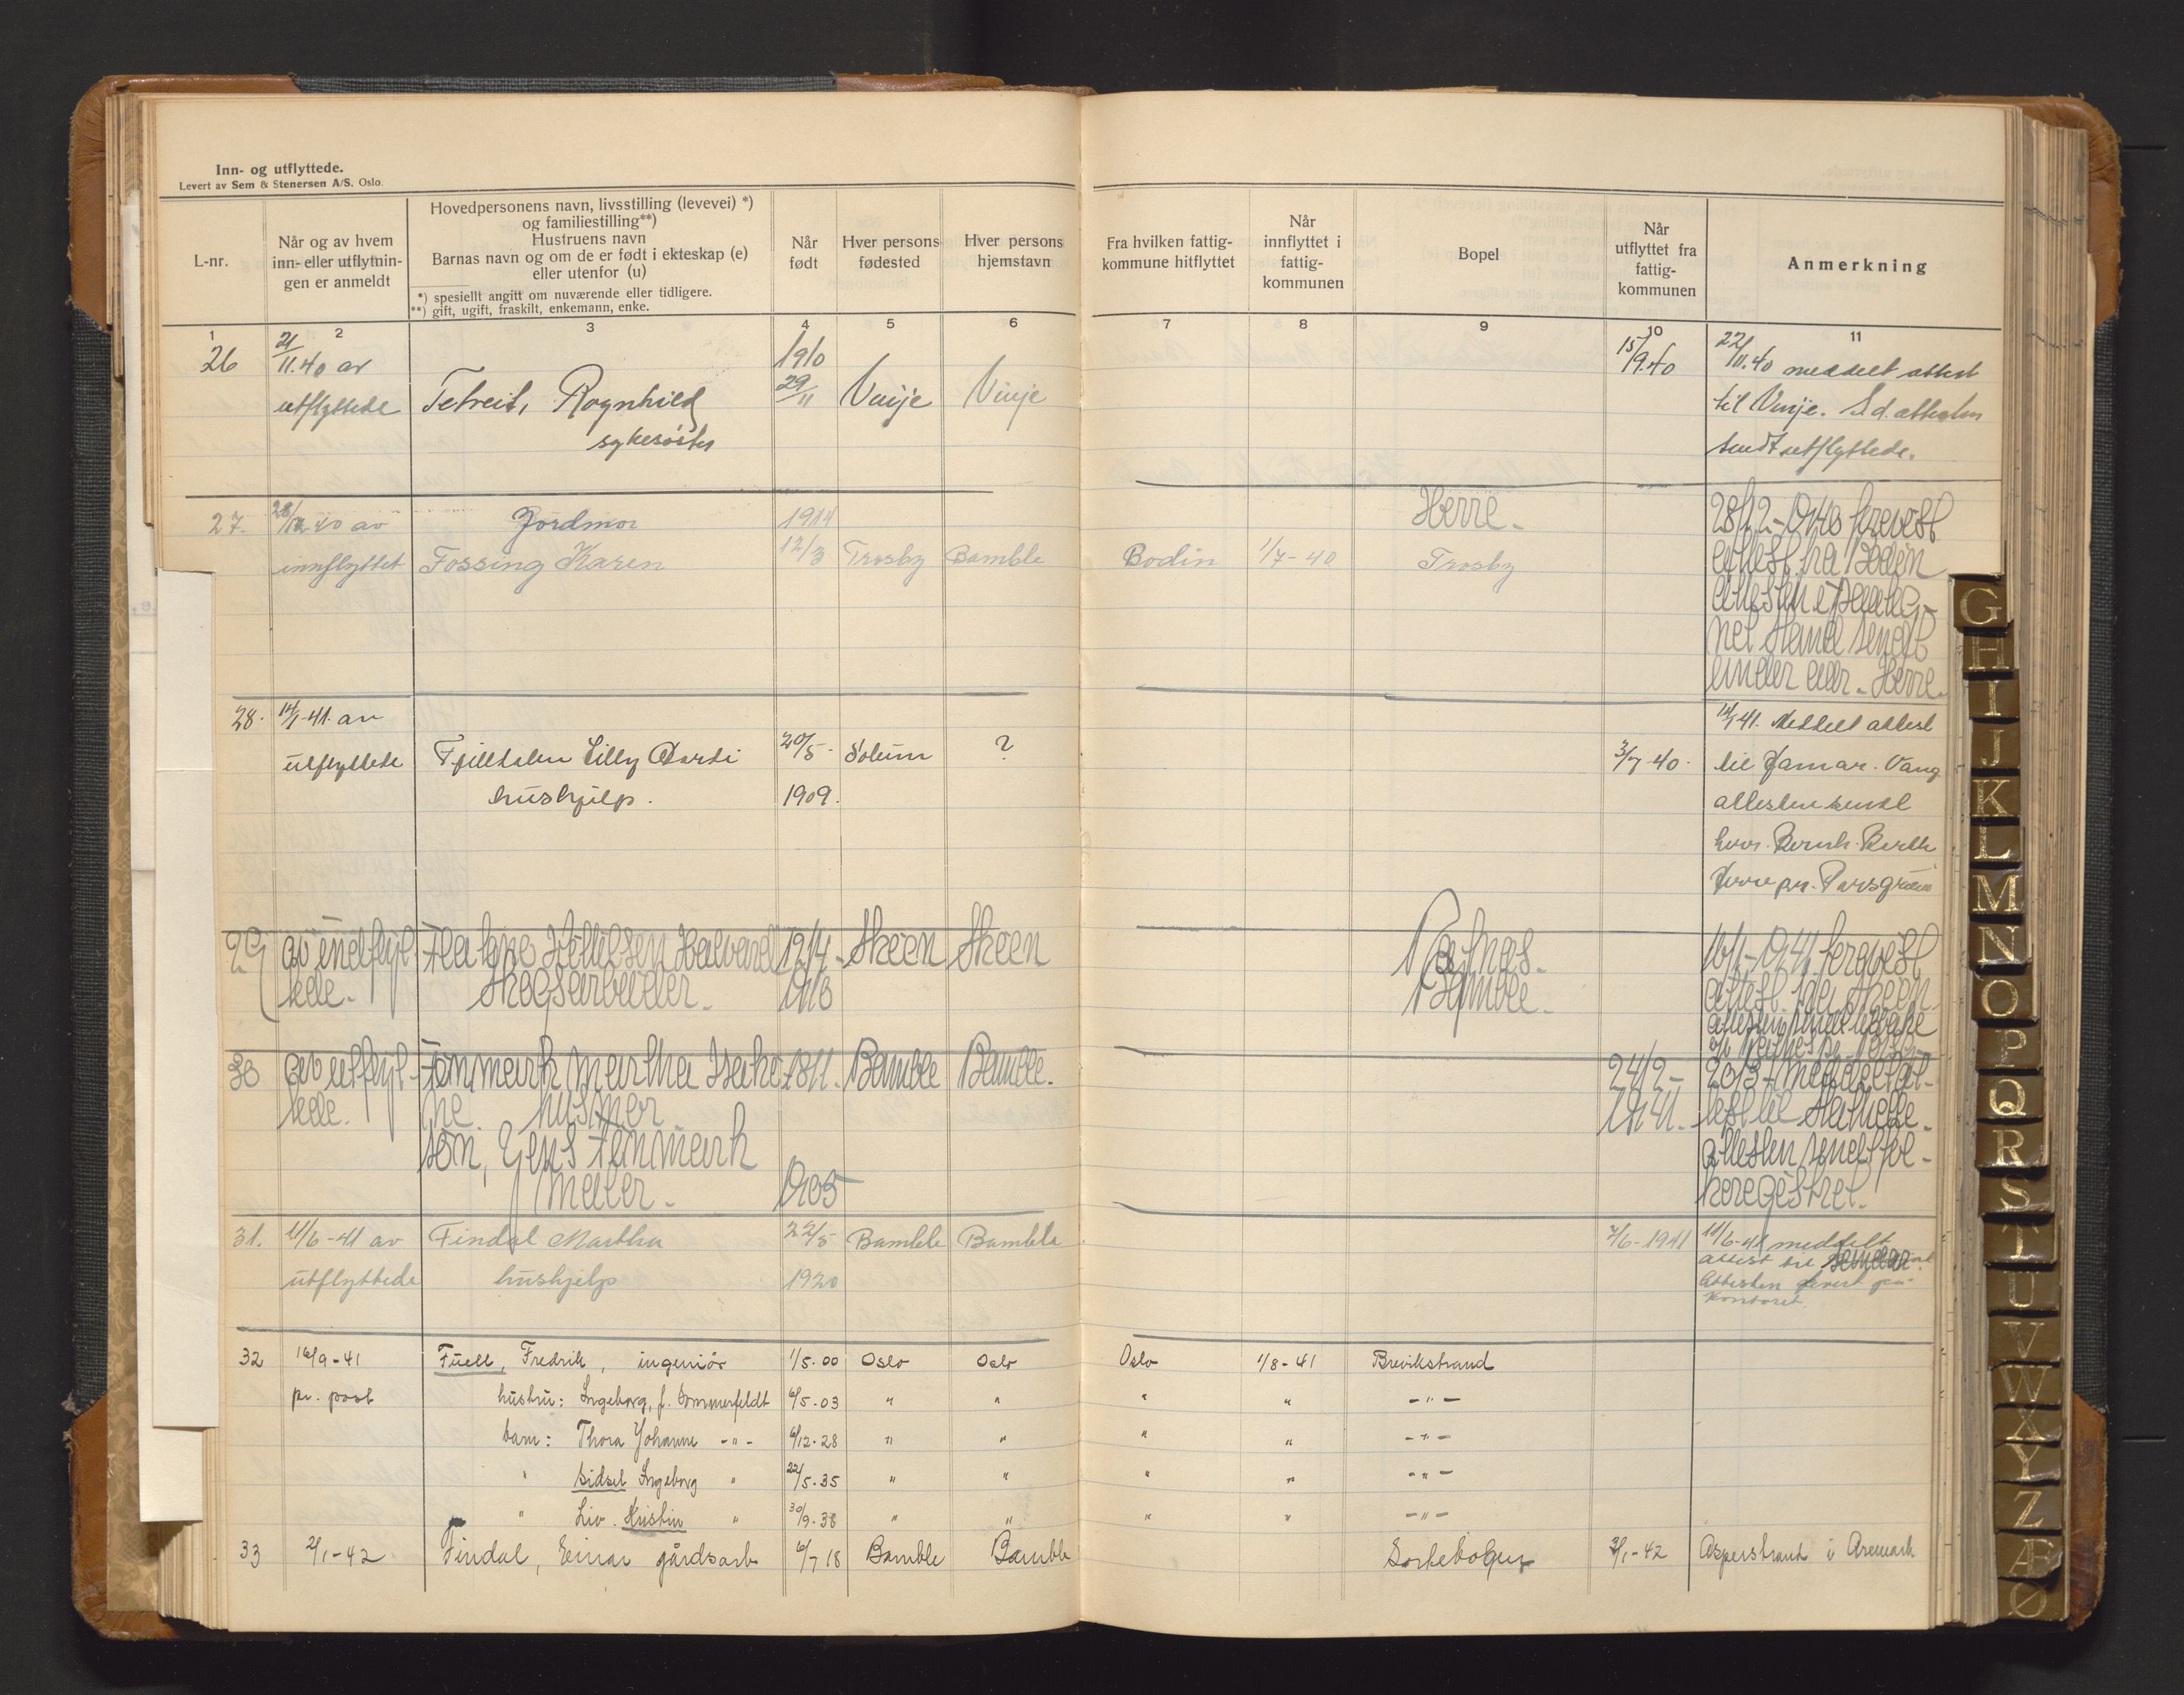 Inn- og utflyttede.
Levert av Sem & Stenersen A/S. Oslo.
L-nr.
Når og av hvem
inn- eller utflytnin-
gen er anmeldt
Hovedpersonens navn, livsstilling (levevei) *)
og familiestilling**)
Hustruens navn
Barnas navn og om de er født i ekteskap (e)
eller utenfor (u)
*) spesiellt angitt om nuværende eller tidligere.
**) gift, ugift, fraskilt, enkemann, enke.
Når
født
Hver persons
fødested
Hver persons
hjemstavn
Fra hvilken fattig-
kommune hitflyttet
Når
innflyttet i
fattig-
kommunen
Bopel
Når
utflyttet fra
fattig-
kommunen
Anmerkning
1 2 3 4 5 6 7 8 9 10 11
26 21/11.40 av 1910 15/9.40 22/11.40 meddelt attest
utflyttede Ragnhild 29/11 Vinje Vinje til Vinje. attesten
sykesøster sendt utflyttede.
27. 28/12 40 av Jordmor 1914 Herre. 28/12-1940 krevest
innflyttet Fossing Karen 12/3 Trosby Bamble Bodin 1/7-40 Trosby attest fra Bodin
attesten
sendt
under adr. Herre.
28. 14/1-41. av 14/1 41. Meddelt attest
utflyttede Lilly 20/5- Solum ? 3/7-40. til Hamar. Vang
hushjelp. 1909. attesten sendt
Herre pr. Porsgrunn
29 av indflyt- Halvard 12/4- Skeen Skeen 16/1-1941
tede. Skogsarbeider. Bamble. attest fra Skeen
30 av utflyt- Martha 1871. Bamble Bamble. 24/2- 20/3- meddelt at-
tede. husmor 1941. test til Stathelle.
søn, Jens attesten sendt fol-
maler. 1905 keregistret.
31. 11/6-41 av Findal Martha 22/5 Bamble Bamble 2/6-1941 11/6-41 meddelt
utflyttede hushjelp 1920 attest til
Attesten levert på
kontoret.
32 16/9-41 Fuell, Fredrik, ingeniør 1/5.00 Oslo Oslo Oslo 1/8-41 Brevikstrand
pr. post hustru: Ingeborg, f. Sommerfeldt 6/5.03 " " " " -"-
barn: Thora Johanne -"- 6/12-28 " " " " -"-
" Sidsel Ingeborg " 22/5.35 " " " " -"-
" Liv. Kristin " 30/9.38 " " " " -"-
33 2/1-42 Findal, Einar gårdsarb 6/7 18 Bamble Bamble 2/1-42 Asperstrand i Aremark
G
H
I
J
K
L
M
N
O
P
Q
R
S
T
U
V
W
X
Y
Z
Æ
Ø